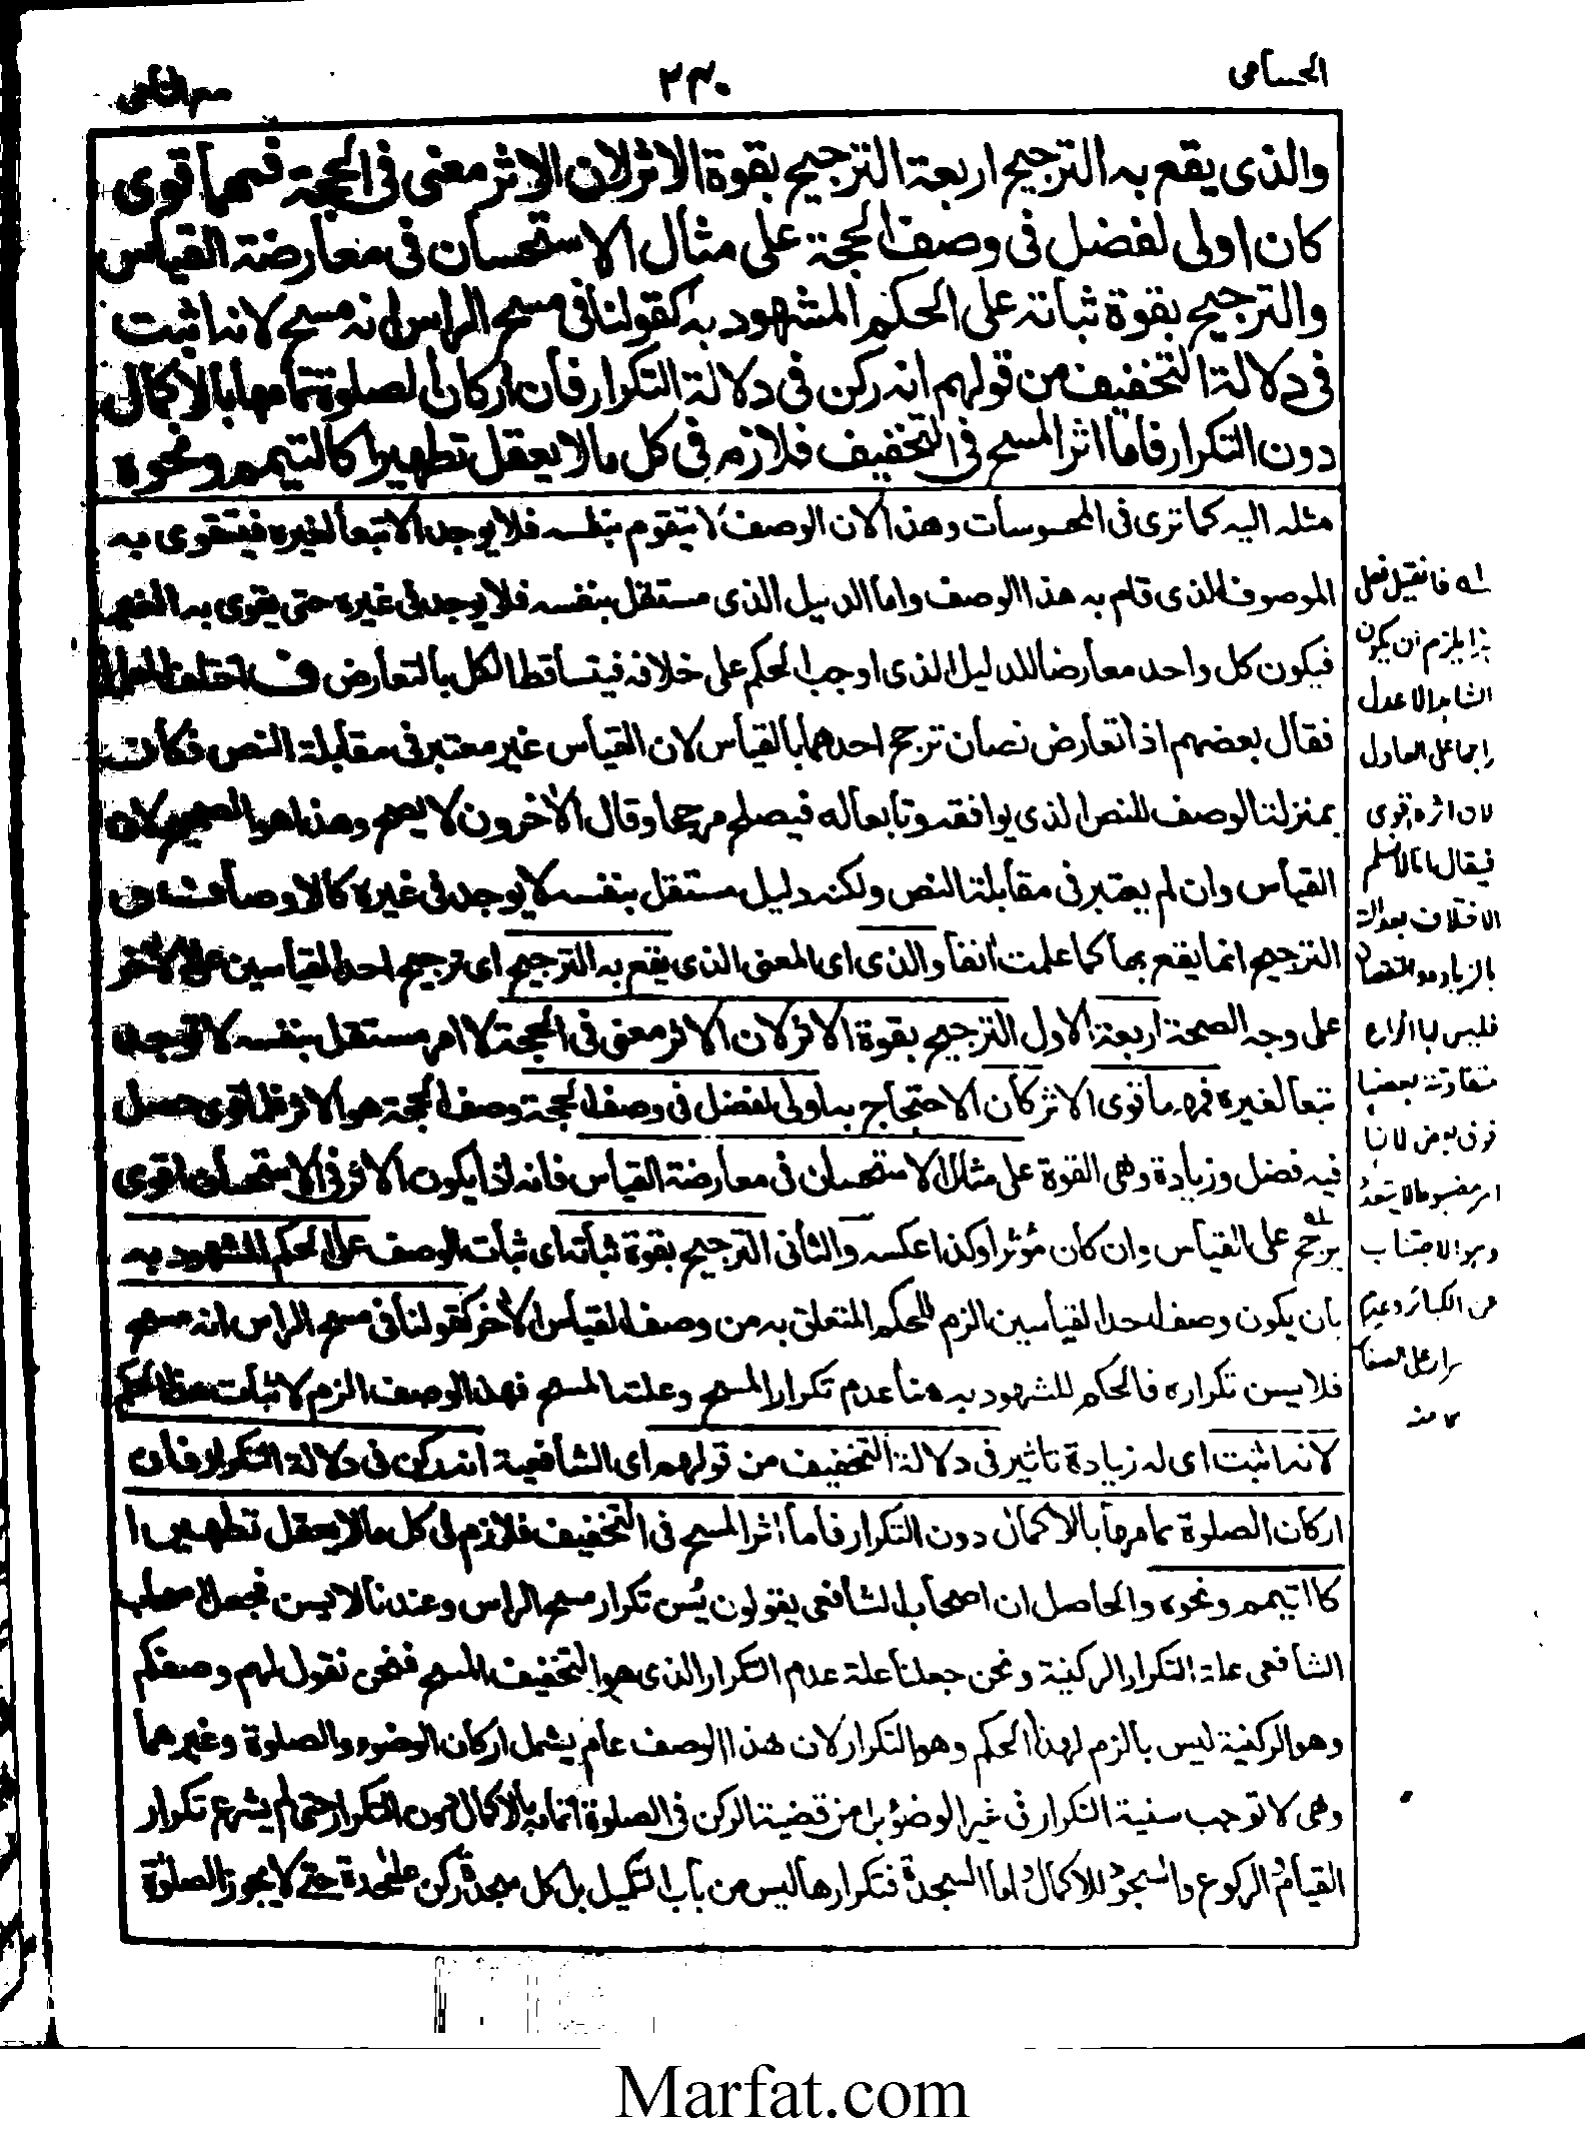 الحسامى
٢٣٠
مع النامى
والذى يقع به الترجيح اربعة الترجيح بقوة الاثر لان الاثر معنى فى الحجة فمهما قوى
كان اولى لفضل فى وصف الحجة على مثال الاستحسان فى معارضة القياس
والترجيح بقوة ثباته على الحكم المشهود به كقولنا فى مسح الراس انه مسح لانه اثبت
فى دلالة التخفيف من قولهم انه ركن فى دلالة التكرار فان اركان الصلوة تمامها بالاكمال
دون التكرار فاما اثر المسح فى التخفيف فلازم فى كل مالا يعقل تطهيرا كالتيمم ونحوه
مثله اليه كما ترى فى المحسوسات وهذا لان الوصف لا يتقوم بنفسه فلا يوجد الا تبعا لغيره فيتقوى به
الموصوف الذى قام به هذا الوصف واما الدليل الذى مستقل بنفسه فلا يوجد فى غيره حتى يقوى به الغير
فيكون كل واحد معارضا للدليل الذى اوجب الحكم على خلافه فيتساقط الكل بالتعارض ف اختلف
فقال بعضهم اذا تعارض نصان ترجح احدهما بالقياس لان القياس غير معتبر فى مقابلة النص فكان
بمنزلة الوصف للنص الذى يوافقه وتابعا له فيصلح مرجحا وقال الأخرون لا يصح وهذا هو الصحيح لان
القياس وان لم يعتبر فى مقابلة النص ولكنه دليل مستقل بنفسه لا يوجد فى غيره كالاوصاف
الترجيح انما يقع بها كما علمت أنفا والذى اى المعنى الذى يقع به الترجيح اى ترجيح احد القياسين على الأخر
على وجه الصحة اربعة الاول الترجيح بقوة الاثر لان الاثر معنى فى الحجة لا امر مستقل بنفسه لا توجد
تبعا لغيره فمهما قوى الاثر كان الاحتجاج به اولى لفضل فى وصف الحجة وصف الحجة هو الاثر فلما قوى حصل
فيه فضل وزيادة وهى القوة على مثال الاستحسان فى معارضة القياس فانه اذا يكون الاثر فى الاستحسان اقوى
يرجح على القياس وان كان مؤثرا وكذا عكسه والثانى الترجيح بقوة ثباته اى ثبات الوصف على الحكم المشهود به
بان يكون وصف احد القياسين الزم للحكم المتعلق به من وصف القياس الأخر كقولنا فى مسح الراس انه مسح
فلا يسن تكراره فالحكم للشهود به هنا عدم تكرار المسح وعلته المسح فهذا الوصف الزم لاثبات هذا الحكم
لانه اثبت اى له زيادة تاثير فى دلالة التخفيف من قولهم اى الشافعية انه ركن فى دلالة التكرار فان
اركان الصلوة تمامها بالاكمال دون التكرار فاما اثر المسح فى التخفيف فلازم فى كل مالا يعقل تطهيرا
كالتيمم ونحوه والحاصل ان اصحاب الشافعى يقولون يُسن تكرار مسح الراس وعندنا لا يسن فجعل اصحاب
الشافعى علة التكرار الركنية ونحن جعلنا علة عدم التكرار الذى هو التخفيف المسح فنحن نقول لهم وصفكم
وهو الركنية ليس بالزم لهذا الحكم وهو التكرار لان هذا الوصف عام يشمل اركان الوضوء والصلوة وغيرهما
وهى لا توجب سنية التكرار فى غير الوضوء بل من قضية الركن فى الصلوة اتمامه بالاكمال دون التكرار حتى لم يشرع تكرار
القيام والركوع والسجود للاكمال اما السجدة فتكرارها ليس من باب التكميل بل كل سجدة ركن عليحدة حتى لا يجوز الصلوة
له فان قيل فعلى
هذا يلزم ان يكون
الشاهد الاعدل
راجحا على العادل
لان اثره قوى
فيقال انا لا نسلم
الاختلاف بعدالة
بالزيادة والنقصان
فليس لها انواع
متفاوتة بعضها
فوق بعض لانها
امر مضبوط لا يتعدد
وهو الاجتناب
عن الكبائر وعدم
اصرار على الصغائر
١٢ منه
Marfat.com